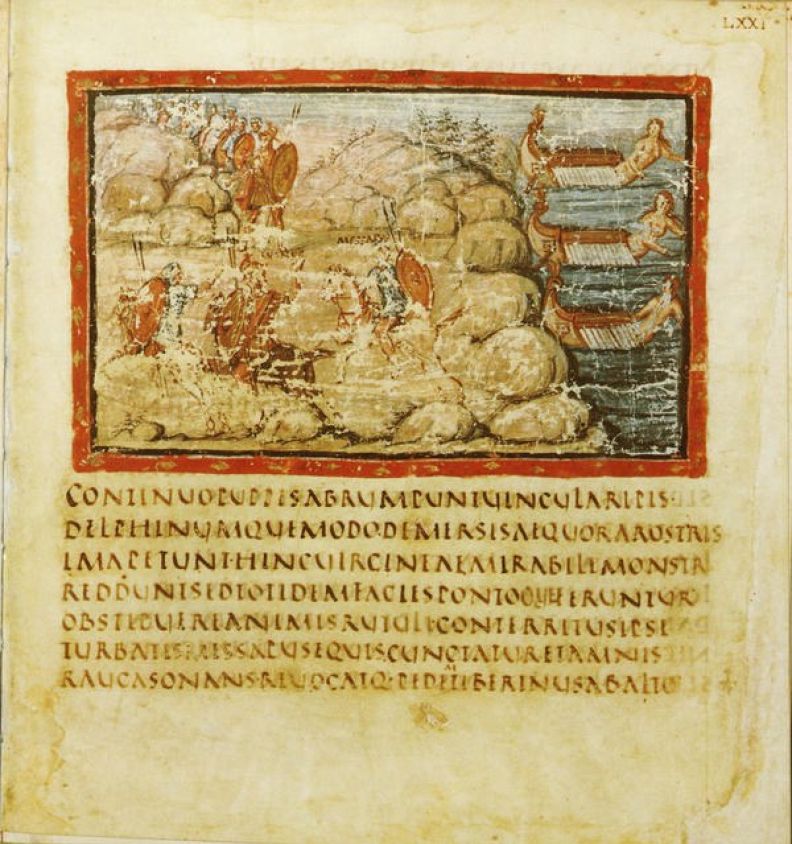 LXXI
MESSAPUS
CONTINUOPUPPESABRUMPUNTUINCULARIPIS
DELPHINUMQUEMODODEMERSISAEQUORAROSTRIS
IMAPETUNTHINCUIRGINEAEMIRABILEMONSTR
REDDUNTSEDTOTIDEMFACIESPONTOQUEFERUNTUR
OBSTIPUEREANIMISRUTULICONTERRITUSIPSE
TURBATISMESSAPUSEQUISCUNCTATURETAMNIS
RAUCASONANSREUOCATQ·PEDEMTIBERINUSABALTO